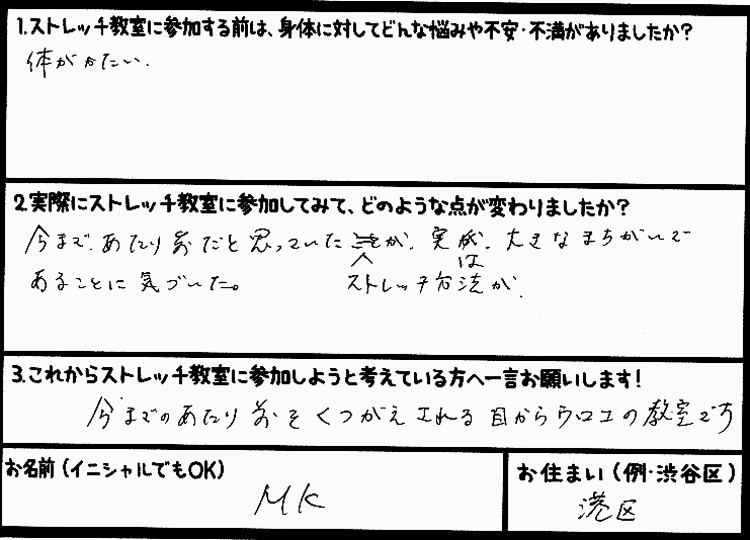 1.ストレッチ教室に参加する前は、身体に対してどんな悩みや不安・不満がありましたか?
体がかたい.
2.実際にストレッチ教室に参加してみて、どのような点が変わりましたか?
今まで、あたり前だと思っていた が、実は、大きなまちがいで
ストレッチ方法が、
あることに気づいた。
3.これからストレッチ教室に参加しようと考えている方へ一言お願いします!
今までのあたり前をくつがえされる目からウロコの教室です
お名前(イニシャルでもOK)
MK
お住まい(例・渋谷区)
港区